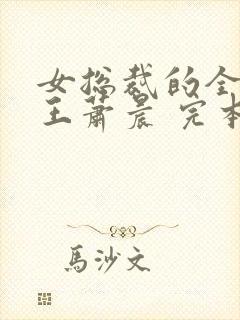 女总裁的全
王萧晨 完本
馬沙文